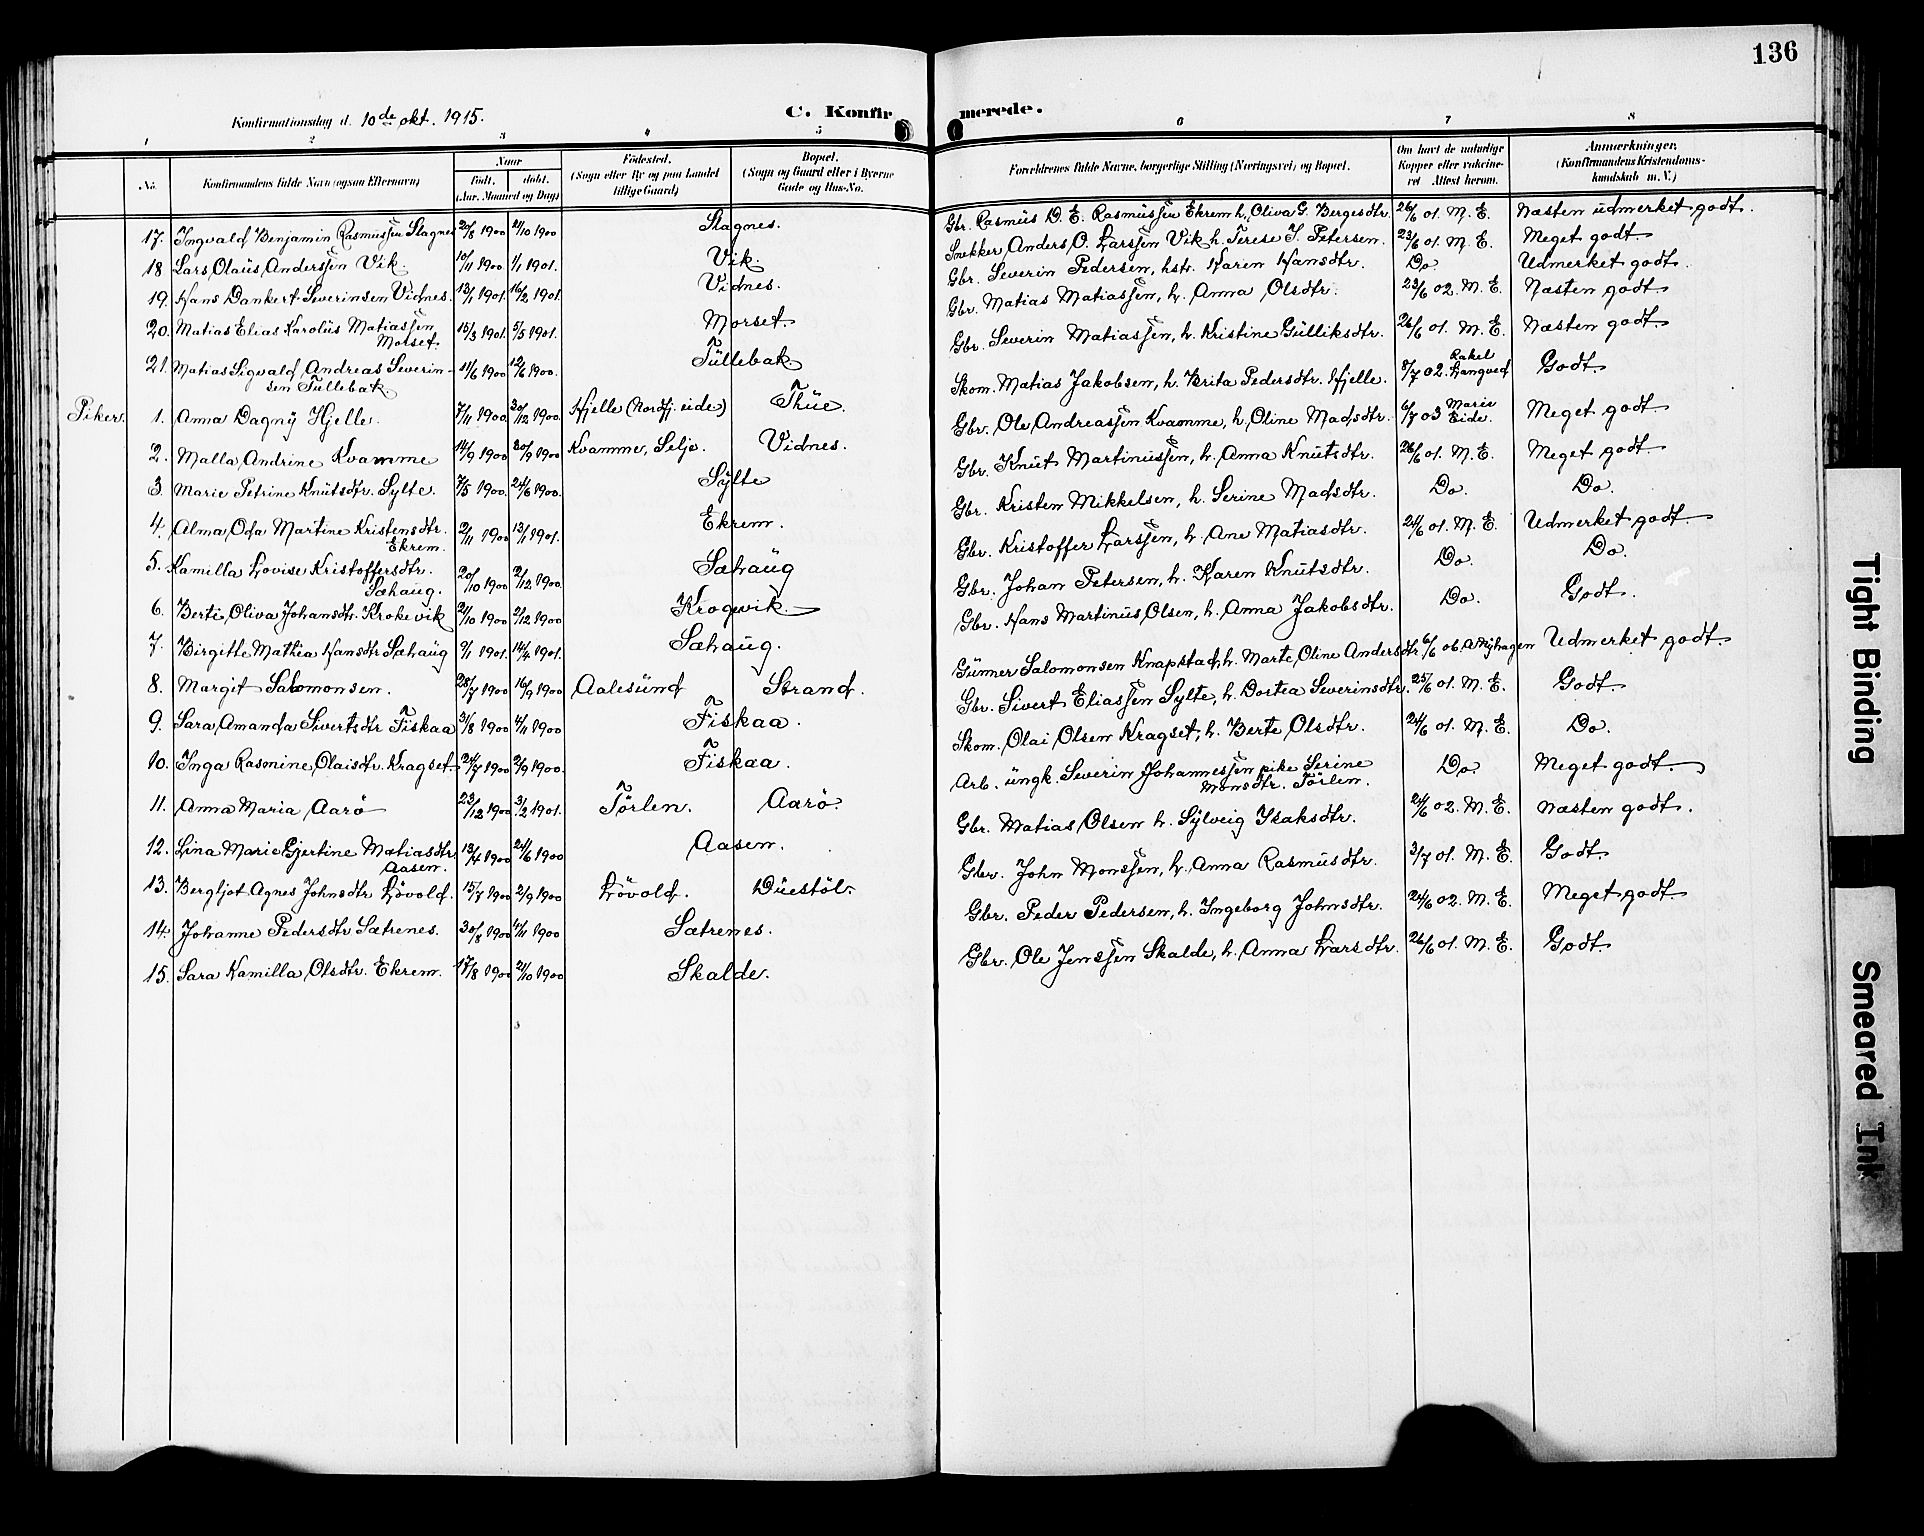 136
Konfirmationsdag d. 10de okt. 1915.
C. Konfirmerede.
1 2 3 4 5 6 7 8
No.
Konfirmandens fulde Navn (ogsaa Efternavn)
Naar
født. døbt.
(Aar, Maaned og Dag)
Fødested.
(Sogn eller By og paa Landet
tillige Gaard)
Bopæl.
(Sogn og Gaard eller i Byerne
Gade og Hus-No.
Forældrenes fulde Navne, borgerlige Stilling (Næringsvei) og Bopæl.
Om havt de naturlige
Kopper eller vakcine-
ret. Attest herom.
Anmerkninger.
(Konfirmandens Kristendoms-
kundskab m. V.)
17. Ingvald Benjamin Rasmussen Slagnes 20/8 1900 21/10 1900 Slagnes. Gbr. Rasmus D. E. Rasmussen Ekrem h. Oliva G. Bergesdtr. 26/6 01. M. E. Næsten udmerket godt.
18 Lars Olaus Anderssen Vik 10/11 1900 1/1 1901. Vik. Snekker Anders O. Larssen Vik h. Terese J. Petersen. 23/6 01. M. E. Meget godt
19. Hans Dankert Severinsen Vidnes. 13/1 1901 16/2 1901. Vidnes. Gbr. Severin Pedersen, hstr. Karen Hansdtr. Do Udmerket godt.
20. Matias Elias Karolus Matiassen
Morset. 15/3 1901. 5/5 1901. Morset Gbr. Matias Matiassen, h. Anna Olsdtr. 23/6 02. M. E. Næsten godt
21. Matias Sigvald Andreas Severin-
sen Tullebak 11/6 1900 12/6 1900. Tullebak Gbr. Severin Matiassen, h. Kristine Gulliksdtr. 26/6 01. M. E. Næsten godt.
Piker. 1. Anna Dagny Hjelle. 7/11 1900. 30/12 1900. Hjelle (Nordfj. eide) Thue. Skom. Matias Jakobsen, h. Brita Pedersdtr. Hjelle. 8/7 02. Rakel
Langved Godt.
2. Malla Andrine Kvamme 14/9 1900 30/9 1900 Kvamme, Selje. Vidnes. Gbr. Ole Andreassen Kvamme, h. Oline Madsdtr. 6/7 03 Marie
Eide. Meget godt
3. Marie Petrine Knutsdtr. Sylte. 7/5 1900. 24/6 1900. Sylte Gbr. Knut Martinussen, h. Anna Knutsdtr. 26/6 01. M. E. Meget godt.
4. Alma Oda Martine Kristensdtr.
Ekrem. 2/11 1900 13/1 1901. Ekrem. Gbr. Kristen Mikkelsen, h. Serine Madsdtr. Do. Do.
5. Kamilla Lovise Kristoffersdtr.
Sæhaug. 20/10 1900 2/12 1900. Sæhaug Gbr. Kristoffer Larssen, h. Ane Matiasdtr. 24/6 01. M. E. Udmerket godt.
6. Berte Oliva Johansdtr. Krokevik 21/10 1900 2/12 1900 Krogevik. Gbr. Johan Petersen, h. Karen Knutsdtr. Do. Do.
7. Birgitte Mathea Hansdtr Sæhaug 9/1 1901. 14/4 1901. Sæhaug. Gbr. Hans Martinus Olsen, h. Anna Jakobsdtr. Do. Godt.
8. Margit Salomonsen. 28/7 1900 16/9 1900 Aalesund Strand. Gunner Salomonsen Knapstad, h. Marte Oline Andersdtr. 6/6 06. A. Myhagen Udmerket godt.
9. Sara Amanda Sivertsdtr Fiskaa 31/8 1900 4/11 1900 Fiskaa. Gbr. Sivert Eliassen Sylte, h. Dortea Severinsdtr. 25/6 01. M. E. Godt.
10. Inga Rasmine Olaisdtr. Kragset. 24/7 1900 2/9 1900. Fiskaa. Skom. Olai Olsen Kragset, h. Berte Olsdtr. 24/6 01. M. E. Do.
11. Anna Maria Aarö 23/12 1900 3/2 1901. Törlen. Aarö. Arb. ungk. Severin Johannessen pike Serine
Monsdtr. Törlen. Do. Meget godt.
12. Lina Marie Gjertine Matiasdtr.
Aasen. 13/4 1900 24/6 1900 Aasen. Gbr. Matias Olsen h. Sylveig Isaksdtr. 24/6 02. M. E. næsten godt.
13. Bergljot Agnes Johnsdtr. Lövold. 15/7 1900 2/9 1900 Lövold. Duestöl. Gbr. John Monssen, h. Anna Rasmusdtr. 3/7 01. M. E. Godt.
14. Johanne Pedersdtr Sætrenes. 30/8 1900 4/11 1900 Sætrenes. Gbr. Peder Pedersen, h. Ingeborg Johnsdtr. 24/6 02. M. E. Meget godt.
15. Sara Kamilla Olsdtr. Ekrem. 17/8 1900 21/10 1900 Skalde. Gbr. Ole Jenssen Skalde, h. Anna Larsdtr. 26/6 01. M. E. Godt
Tight Binding
Smeared Ink